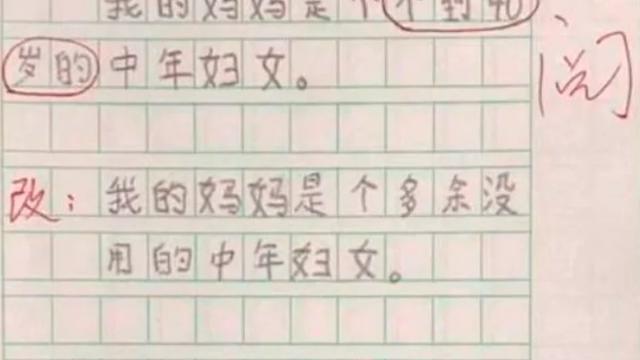 我的妈妈是个不到40
岁的中年妇女。
阅
改：我的妈妈是个多余没
用的中年妇女。